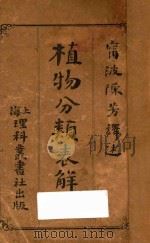 甯波陳芳譯述
植物分類表解
上海理科叢書社出版